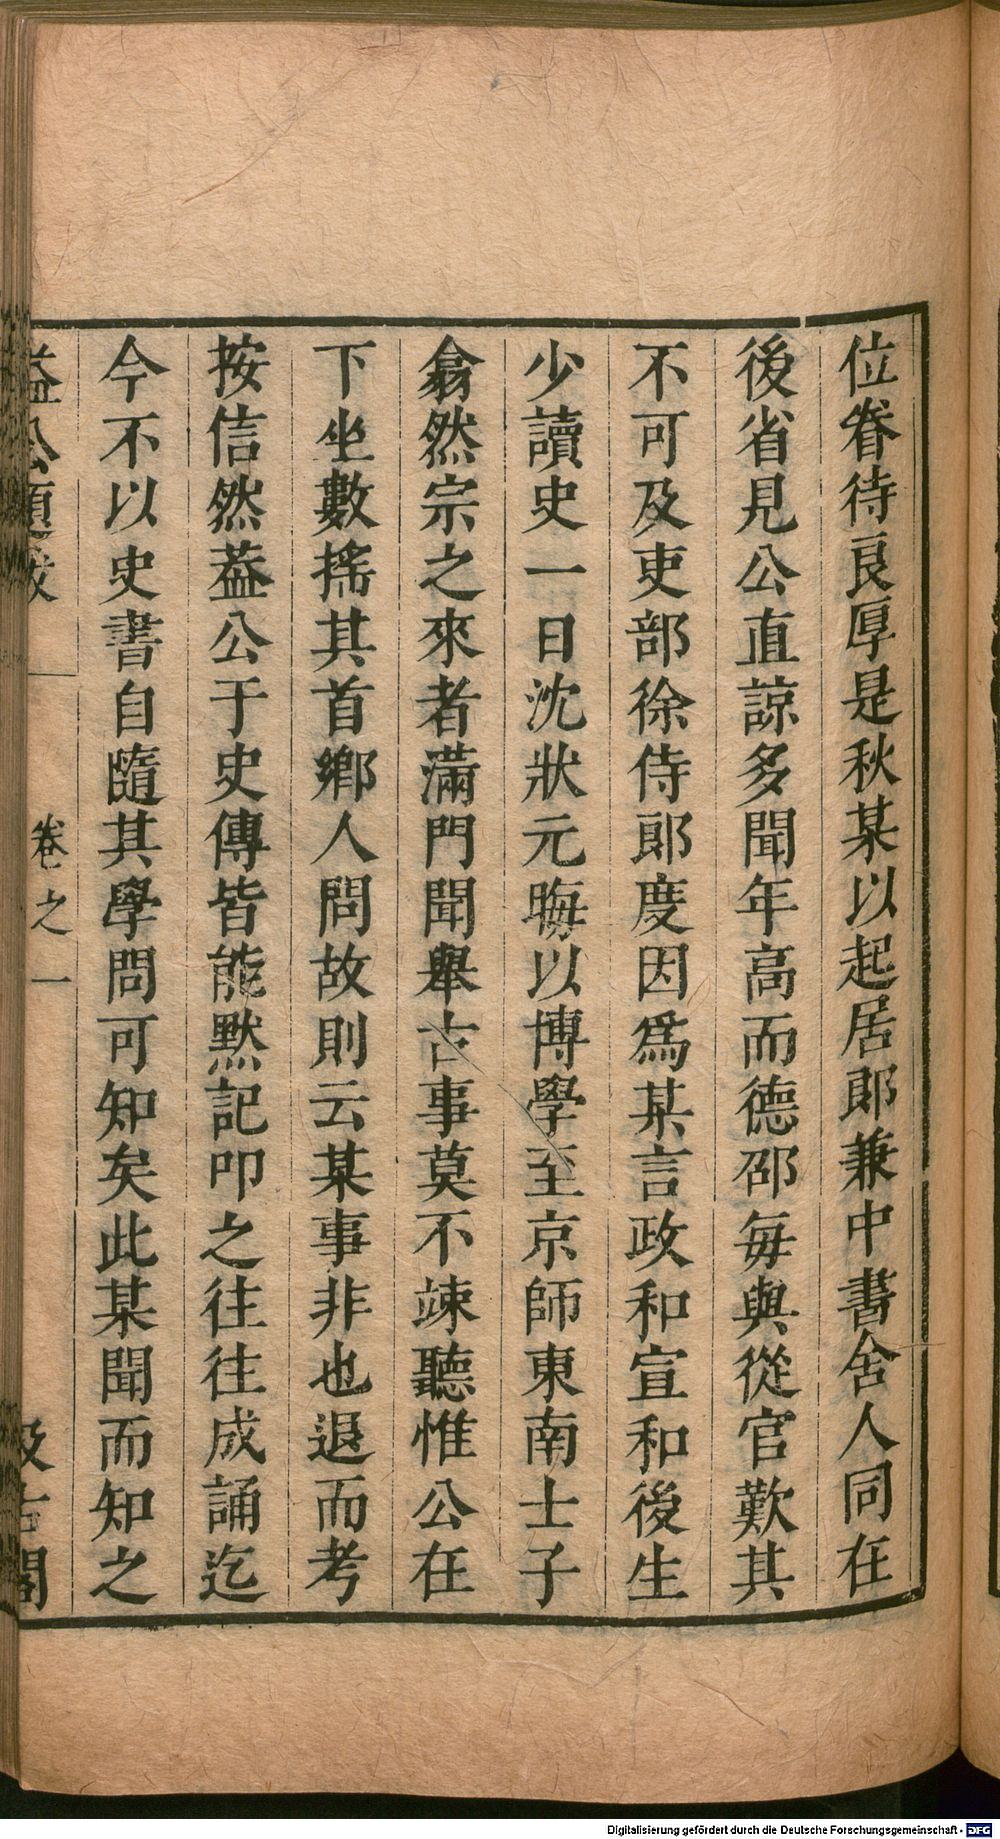 位眷待良厚是秋某以起居郎兼中書舍人同在
後省見公直諒多聞年高而德邵每與從官歎其
不可及吏部徐侍郎度因爲某言政和宣和後生
少讀史一日沈狀元晦以博學至京師東南士子
翕然宗之來者滿門聞舉古事莫不竦聽惟公在
下坐數搖其首鄉人問故則云某事非也退而考
按信然葢公于史傳皆能默記叩之往往成誦迄
今不以史書自隨其學問可知矣此某聞而知之
益公題跋 卷之一 汲古閣
Digitalisierung gefördert durch die Deutsche Forschungsgemeinschaft - DFG